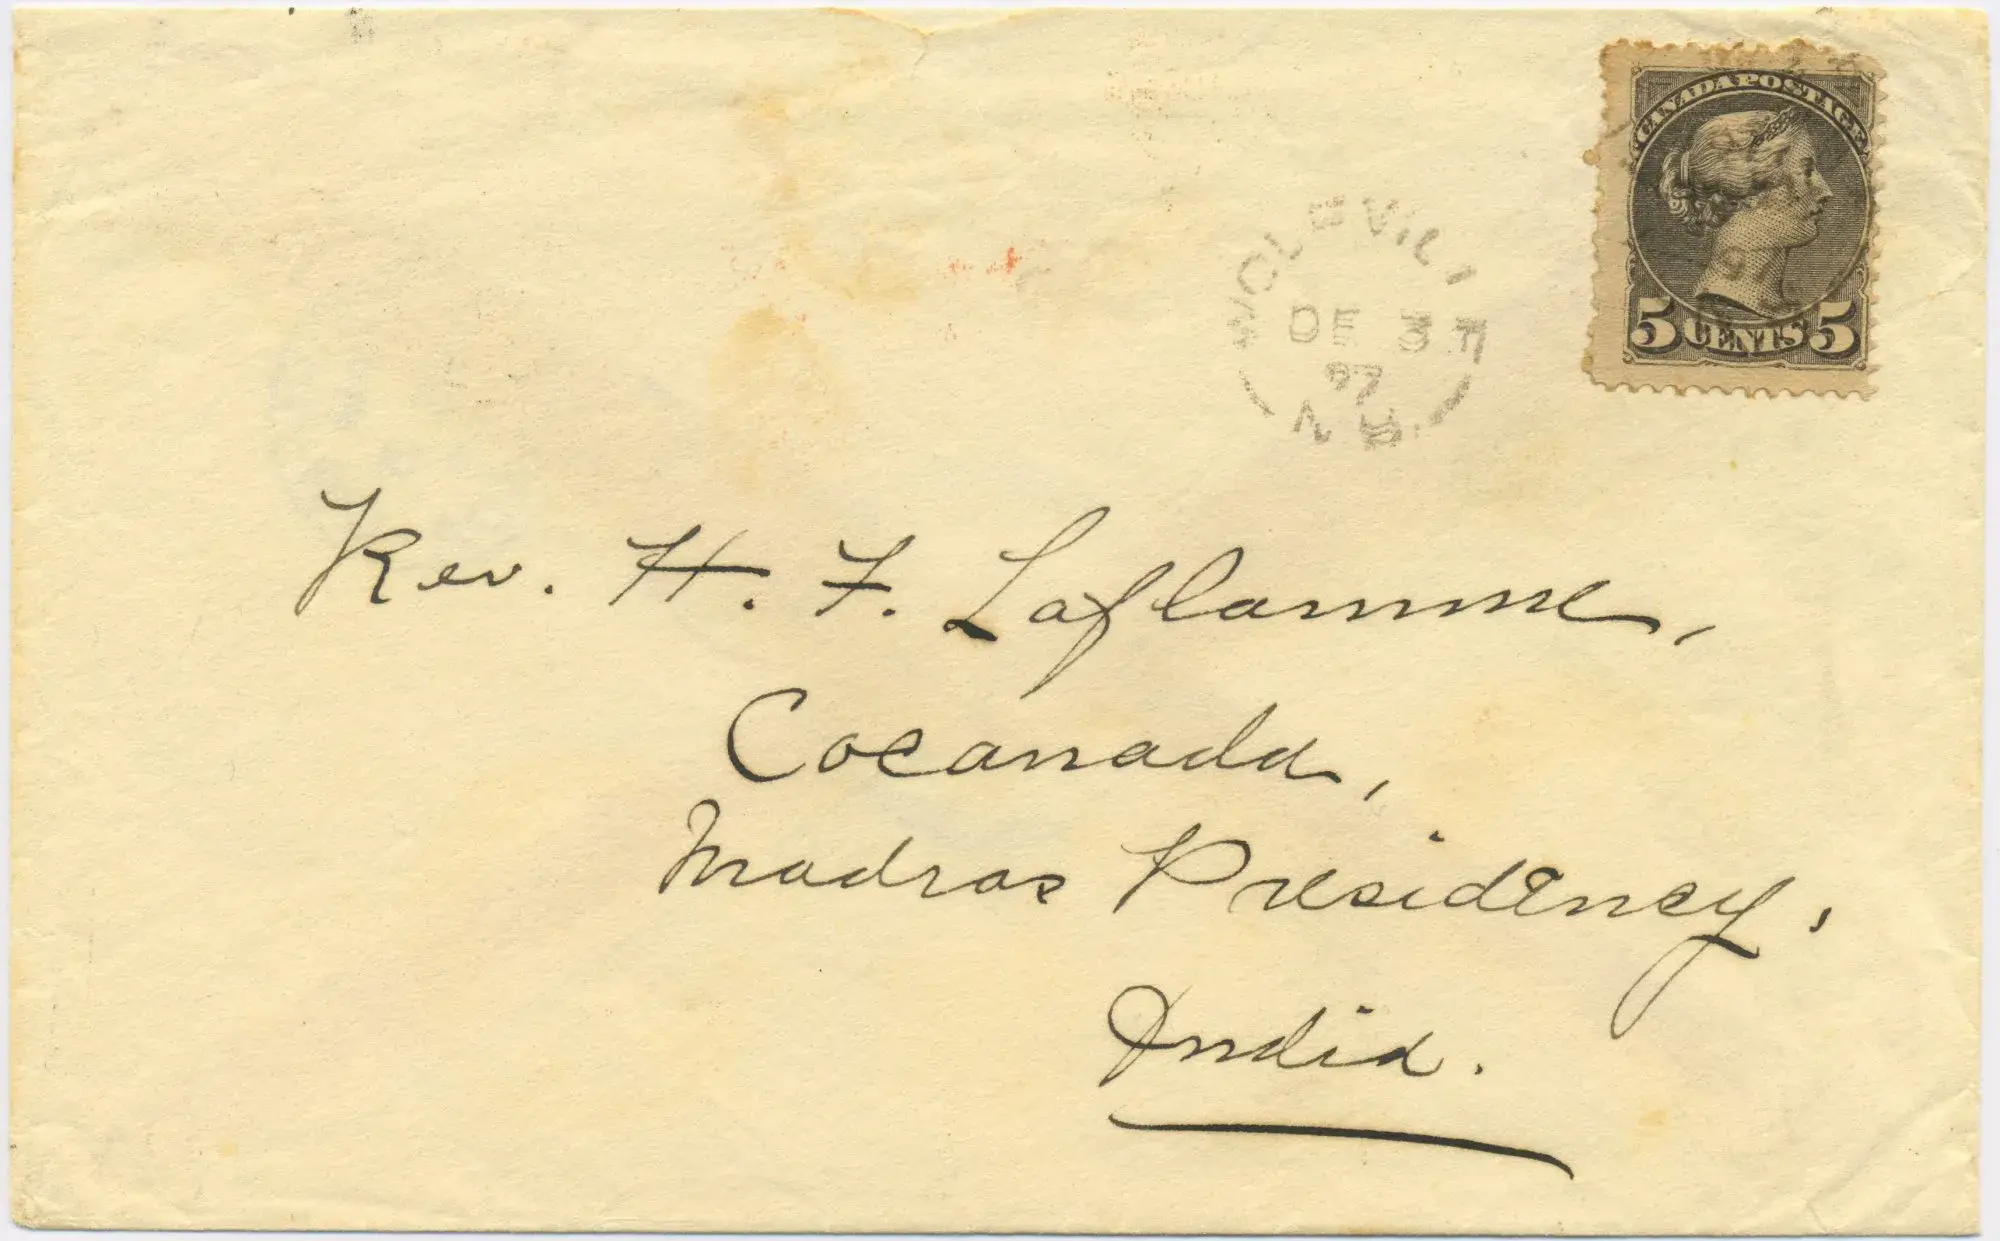 CANADA POSTAGE
5 CENTS 5
DE 31
97
N.B.
Rev. H. F. Laflamme,
Cocanada,
Madras Presidency,
India.